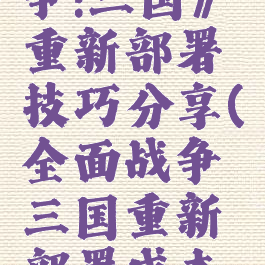 争:三国》
重新部署
技巧分享(
全面战争
三国重新
部署成本